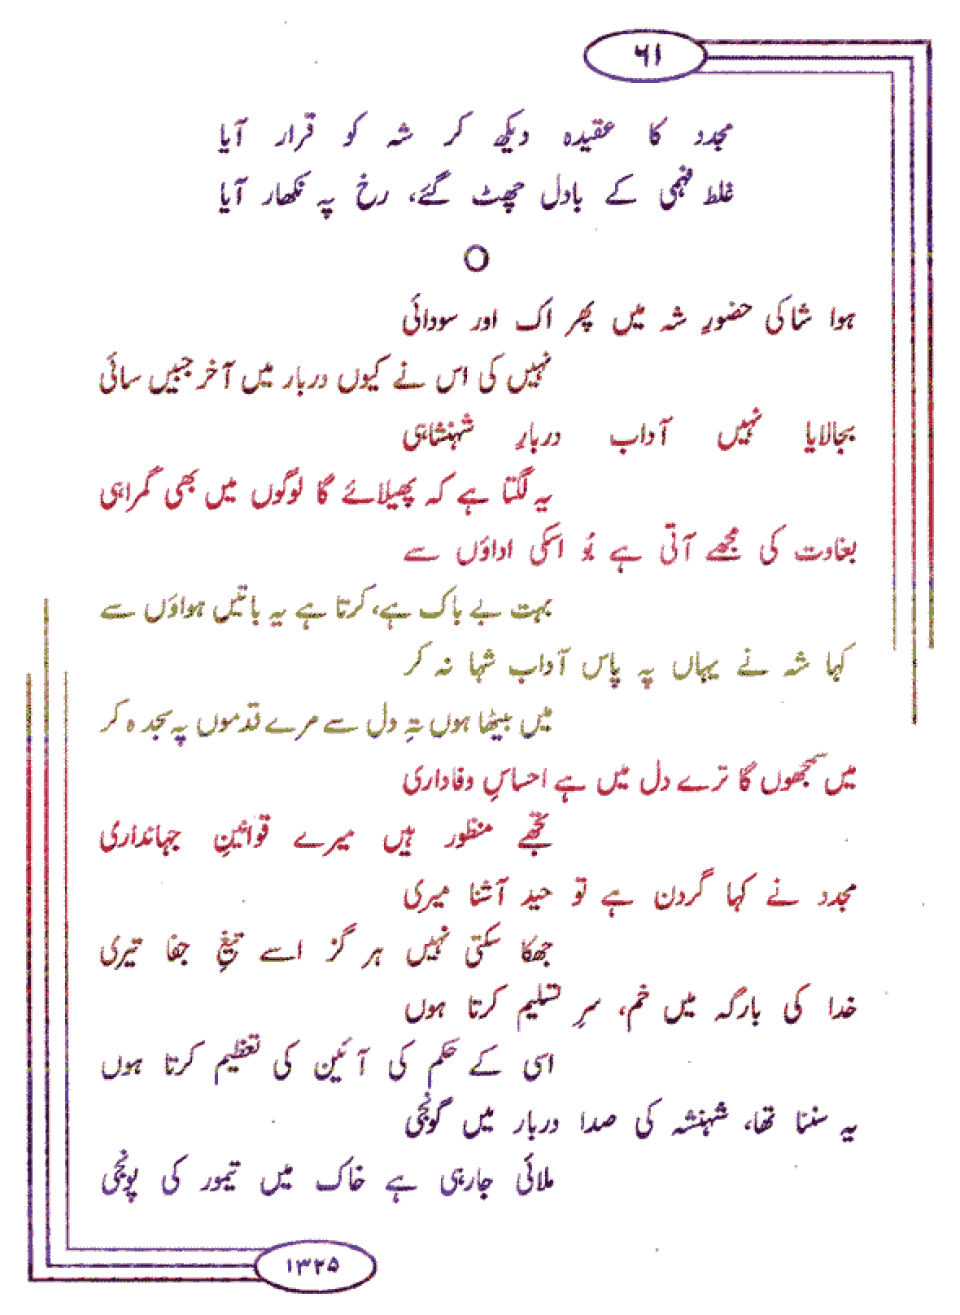 ۶۱
مجدد کا عقیدہ دیکھ کر شہ کو قرار آیا
غلط فہمی کے بادل چھٹ گئے، رخ پہ نکھار آیا
ہوا شاکی حضورِ شہ میں پھر اک اور سودائی
نہیں کی اس نے کیوں دربار میں آخر جبیں سائی
بجالایا نہیں آداب دربارِ شہنشاہی
یہ لگتا ہے کہ پھیلائے گا لوگوں میں بھی گمراہی
بغاوت کی مجھے آتی ہے بُو اسکی اداؤں سے
بہت بے باک ہے، کرتا ہے یہ باتیں ہواؤں سے
کہا شہ نے یہاں پہ پاس آداب شہا نہ کر
میں بیٹھا ہوں تہِ دل سے مرے قدموں پہ سجدہ کر
میں سمجھوں گا ترے دل میں ہے احساسِ وفاداری
تجھے منظور ہیں میرے قوانینِ جہانداری
مجدد نے کہا گردن ہے تو حید آشنا میری
جھکا سکتی نہیں ہر گز اسے تیغِ جفا تیری
خدا کی بارگہ میں خم، سرِ تسلیم کرتا ہوں
اسی کے حکم کی آئین کی تعظیم کرتا ہوں
یہ سننا تھا، شہنشہ کی صدا دربار میں گونجی
ملائی جارہی ہے خاک میں تیمور کی پونجی
۱۳۲۵